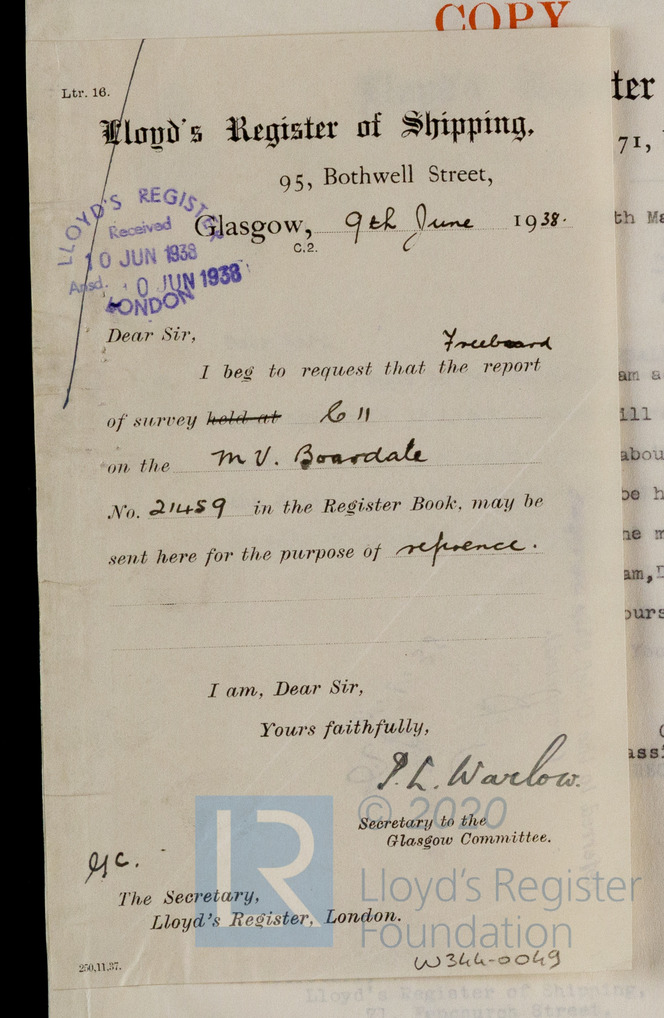 COPY
Ltr. 16.
Lloyd's Register of Shipping,
95, Bothwell Street,
Glasgow, 9th June 1938.
C.2.
LLOYD'S REGISTER
Received
10 JUN 1938
Ansd. 10 JUN 1938
LONDON
Dear Sir,
Freeboard
I beg to request that the report
of survey held at C 11
on the M V. Boardale
No. 21459 in the Register Book, may be
sent here for the purpose of refrence.
I am, Dear Sir,
Yours faithfully,
P. L. Warlow.
Secretary to the
Glasgow Committee.
GC.
The Secretary,
Lloyd's Register, London.
250,11,37.
W344-0049
© 2020
LR
Lloyd's Register
Foundation
ter
71,
th Ma
am a
ill
abou
be h
he m
am, D
ours
assi
Lloyd's Register of Shipping,
71, Fenchurch Street,